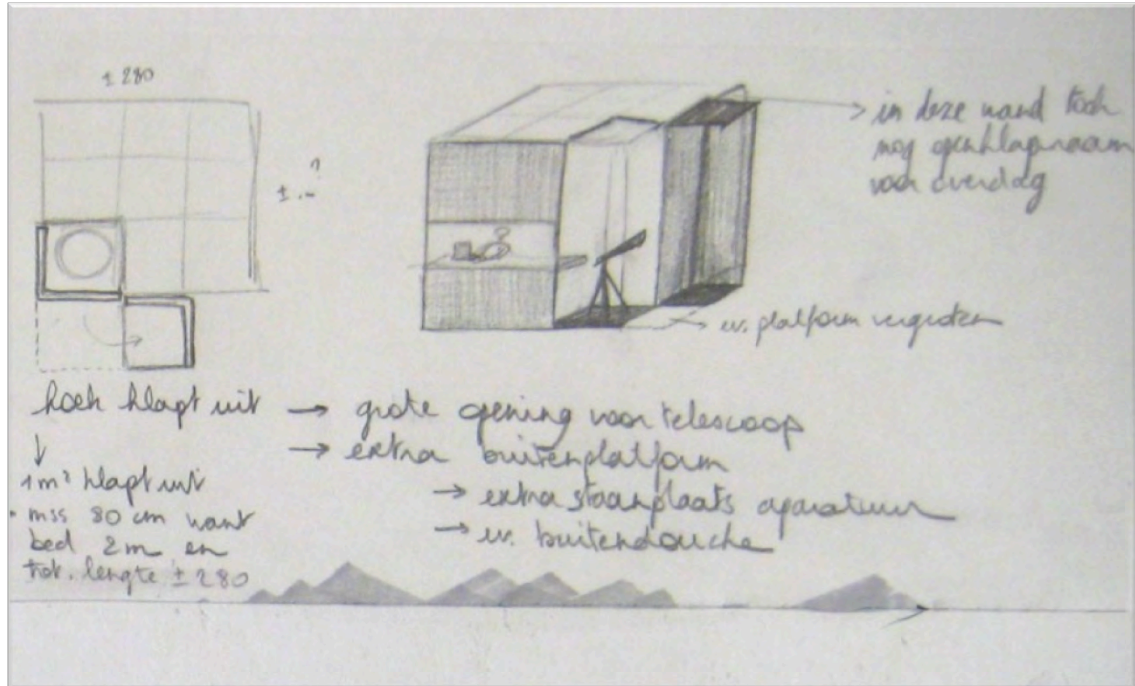 ± 280
± .- ?
in deze wand toch
nog openklapraam
voor overdag
ev. platform vergroten
hoek klapt uit → grote opening voor telescoop
→ extra buitenplatform
→ extra staanplaats aparatuur
→ ev. buitendouche
↓
1m² klapt uit
• mss 80 cm want
bed 2m en
tot. lengte ± 280